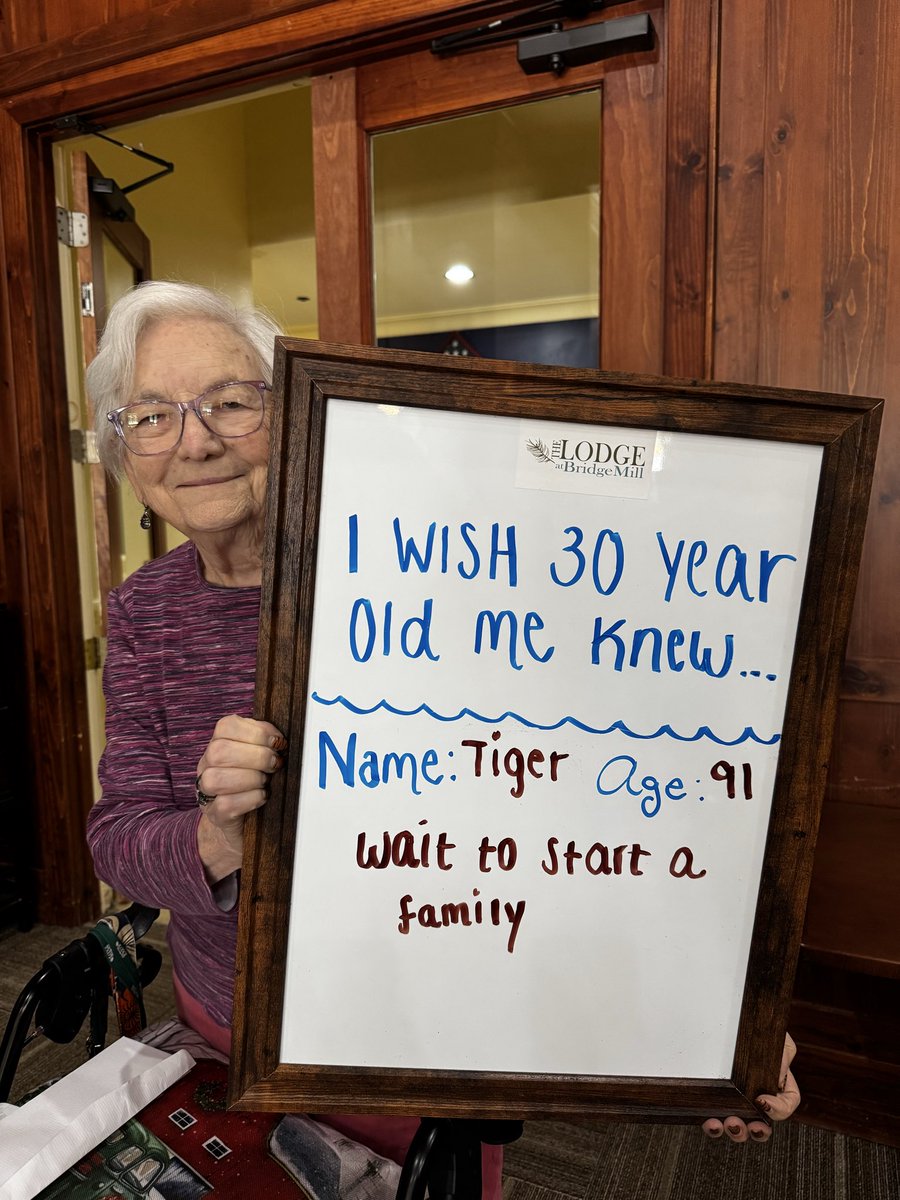 THE LODGE
at BridgeMill
I WISH 30 Year
Old me knew...
Name: Tiger Age: 91
wait to start a
family